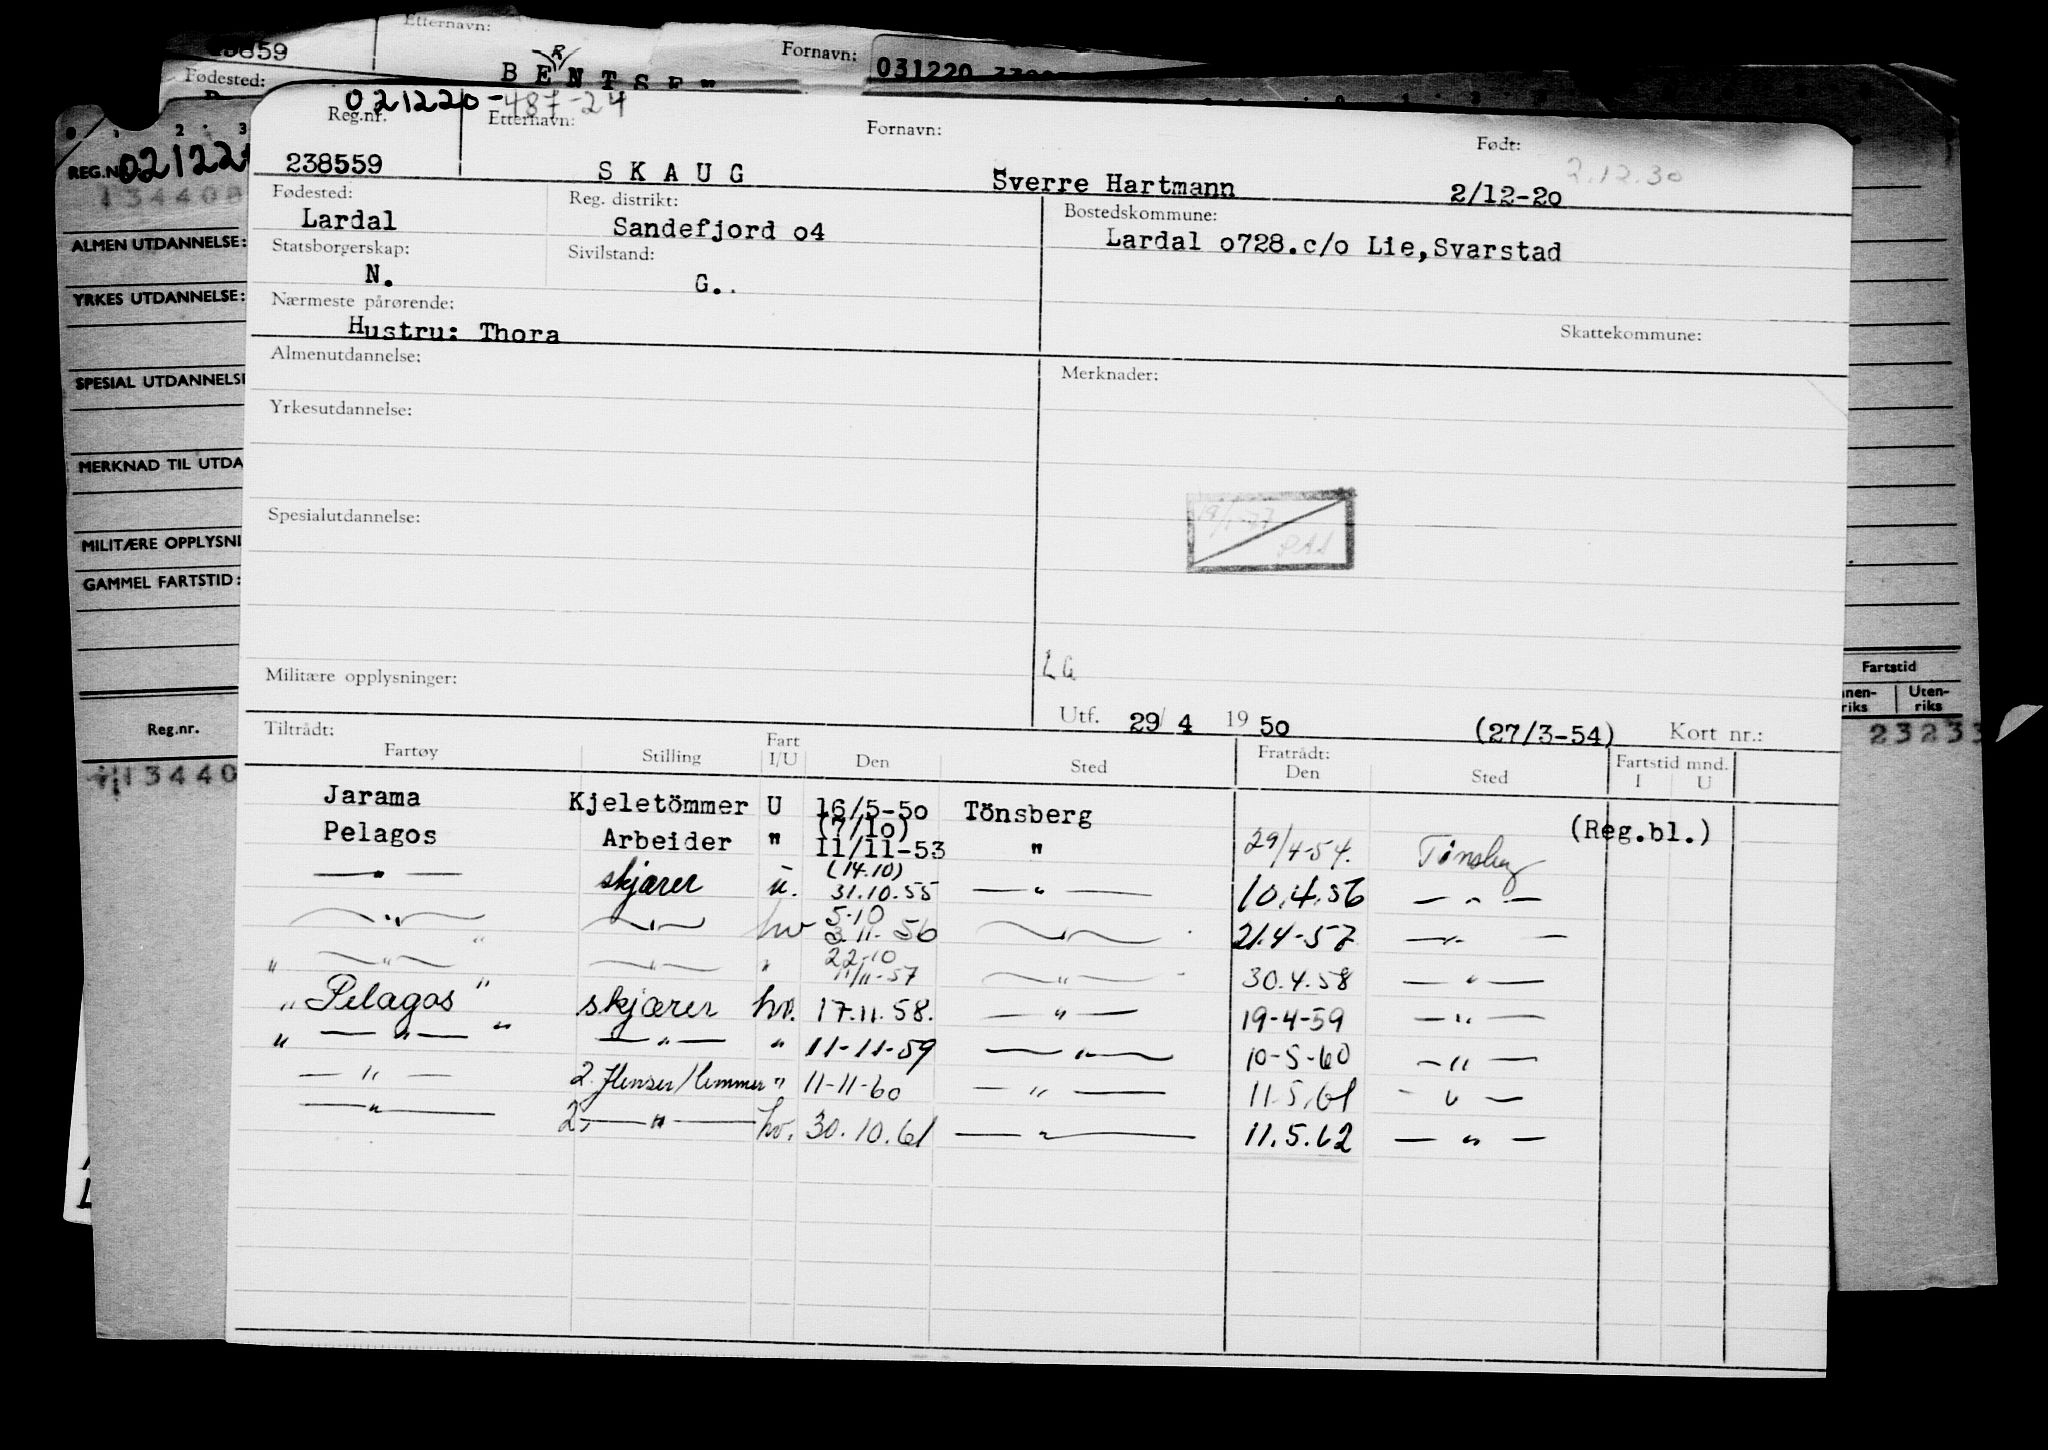 Etternavn:
38659
Fornavn:
031220
Fødested:
BENTSE
021220-487-24
Reg.nr. Etternavn: Fornavn: Født:
0 1 2 3
REG.N 021220
238559 SKAUG Sverre Hartmann 2/12-20 2.12.30
134408
Fødested: Reg. distrikt: Bostedskommune:
Lardal Sandefjord o4 Lardal o728.c/o Lie,Svarstad
ALMEN UTDANNELSE:
Statsborgerskap: Sivilstand:
N. G..
YRKES UTDANNELSE:
Nærmeste pårørende: Skattekommune:
Hustru: Thora
Almenutdannelse: Merknader:
SPESIAL UTDANNELSE
Yrkesutdannelse:
MERKNAD TIL UTDA
Spesialutdannelse:
MILITÆRE OPPLYSNI
GAMMEL FARTSTID:
LG
Militære opplysninger:
Fartstid
Utf. 29/4 1950 (27/3-54) Kort nr.:
nnen- riks Uten- riks
Reg.nr.
23233
13440
Tiltrådt: Fratrådt: Fartstid mnd.
Fartøy Stilling Fart I/U Den Sted Den Sted I U
Jarama Kjeletömmer U 16/5-50 Tönsberg (Reg.bl.)
Pelagos Arbeider " (7/10) 11/11-53 " 29/4-54. Tønsberg
— " — skjærer u. (14.10) 31.10.55 — " — 10.4.56 — " —
— " — — " — hv 5.10 3.11.56 — " — 21.4-57 — " —
" — " — " — " — " 22-10 11/11-57 — " — 30.4.58 — " —
" Pelagos " skjærer hv. 17.11.58. — " — 19-4-59 — " —
" — " — " — " — " 11-11-59 — " — 10-5-60 — " —
— " — 2. flenser/lemmer " 11-11-60 — " — 11.5.61 — " —
— " — 2. — " — hv. 30.10.61 — " — 11.5.62 — " —